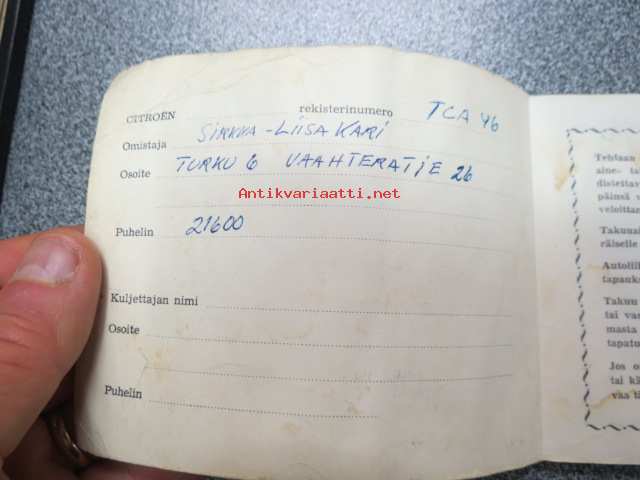 CITROËN rekisterinumero TCA 46
Omistaja SIRKKA-LIISA KARI
Osoite TURKU 6 VAAHTERATIE 26
Antikvariaatti.net
Puhelin 21600
Kuljettajan nimi
Osoite
Puhelin
Tehtaan
aine- ta
distettav
päinsä v
veloittav
Takuuai
räiselle
Autoliik
tapauks
Takuu
tai vas
masta
tapatu
Jos o
tai kä
vaa tä